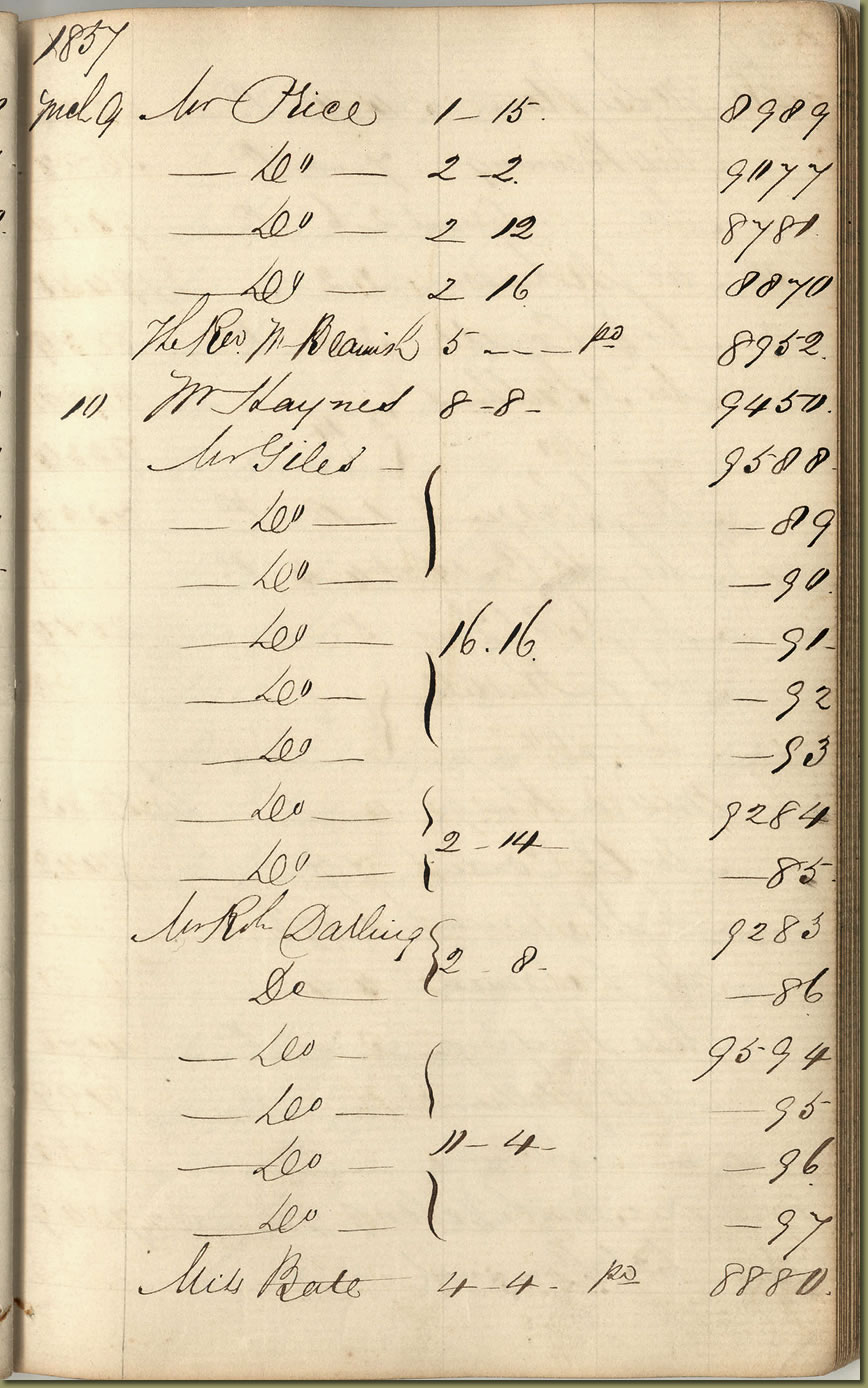 1837
Mch 9 Mr Price 1 - 15. 8989
— Do — 2 - 2. 9077
— Do — 2 12 8781.
— Do — 2 16 8870
The Rev. Mr Beamish 5 - - — pd 8952.
10 Mr Haynes 8 - 8 - 9450.
Mr Giles - 9588
— Do — — 89
— Do — — 90.
— Do — 16. 16. — 91
— Do — — 92
— Do — — 93
— Do — 9284
— Do — 2 - 14 — 85.
Mr Robt Darling 9283
Do 2 - 8 - — 86
— Do - 9594
— Do — — 95
— Do — 11 - 4 - — 96
— Do — — 97
Miss Bate 4 - 4 - pd 8880.